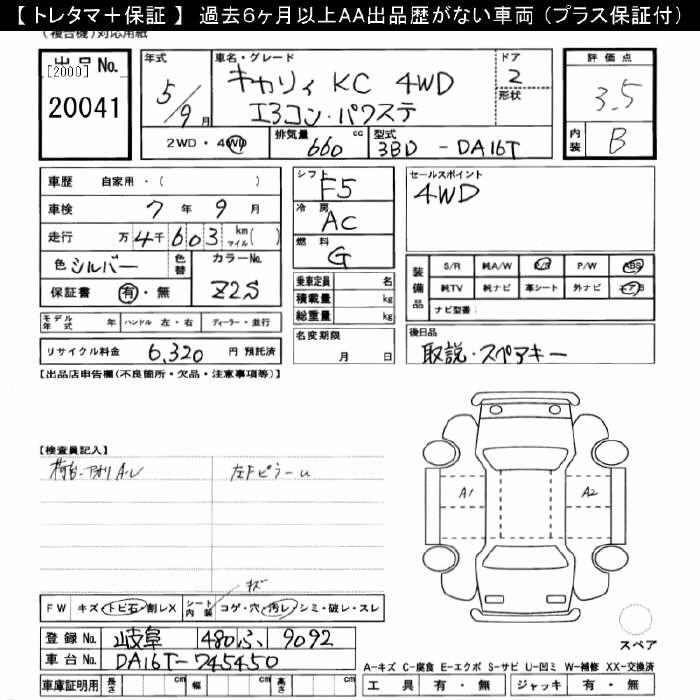 【 トレタマ＋保証 】 過去6ヶ月以上AA出品歴がない車両 (プラス保証付)
(複合機)対応用紙
出品No.
[2000]
20041
年式
5/9月
車名・グレード
キャリィ KC 4WD
エアコン・パワステ
ドア
2
形状
評価点
3.5
内装
B
2WD・4WD
排気量
660 cc
型式
3BD - DA16T
車歴 自家用・( )
車検 7年 9月
走行 万 4千 6 0 3 km マイル( )
色 シルバー 色替
カラーNo.
Z2S
保証書 有・無
シフト
F5
冷房
AC
燃料
G
セールスポイント
4WD
乗車定員 名
積載量 kg
総重量 kg
装備品
S/R 純A/W P/S P/W ABS
純TV 純ナビ 革シート 外ナビ エアB
ナビ型番:
モデル年式 年 ハンドル 左・右 ディーラー・並行
リサイクル料金 6,320 円 預託済
名変期限
月 日
後日品
取説・スペアキー
【出品店申告欄(不良箇所・欠品・注意事項等)】
【検査員記入】
荷台・アオリ A・U
左FピラーU
A1
A2
キズ
FW キズ・トビ石・割レX シート内装 コゲ・穴・汚レ・シミ・破レ・スレ
登録No. 岐阜 480 ふ 9092
車台No. DA16T-745450
車庫証明用 長さ cm 幅 cm 高さ cm
スペア
A-キズ C-腐食 E-エクボ S-サビ U-凹ミ W-補修 XX-交換済
工具 有・無 ジャッキ 有・無